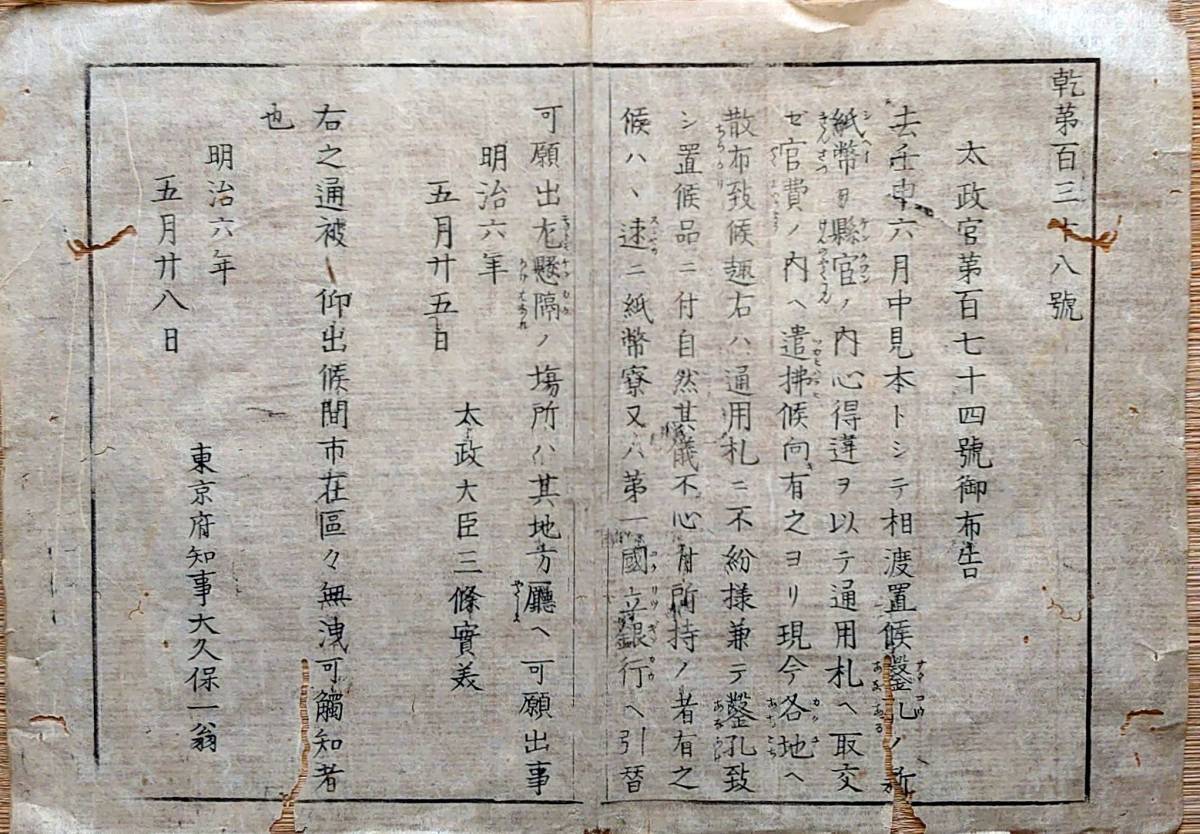 乾第百三十八號
太政官第百七十四號御布告
去壬申六月中見本トシテ相渡置候鑿孔ノ新
紙幣ヲ縣官ノ内心得違ヲ以テ通用札ヘ取交
ゼ官費ノ内ヘ遣拂候向有之ヨリ現今各地ヘ
散布致候趣右ハ通用札ニ不紛様兼テ鑿孔致
シ置候品ニ付自然其儀不心付所持ノ者有之
候ハヽ速ニ紙幣寮又ハ第一國立銀行ヘ引替
可願出尤懸隔ノ塲所ハ其地方廳ヘ可願出事
明治六年
五月廿五日
太政大臣三條實美
右之通被 仰出候間市在區々無洩可觸知者
也
明治六年
五月廿八日
東京府知事大久保一翁